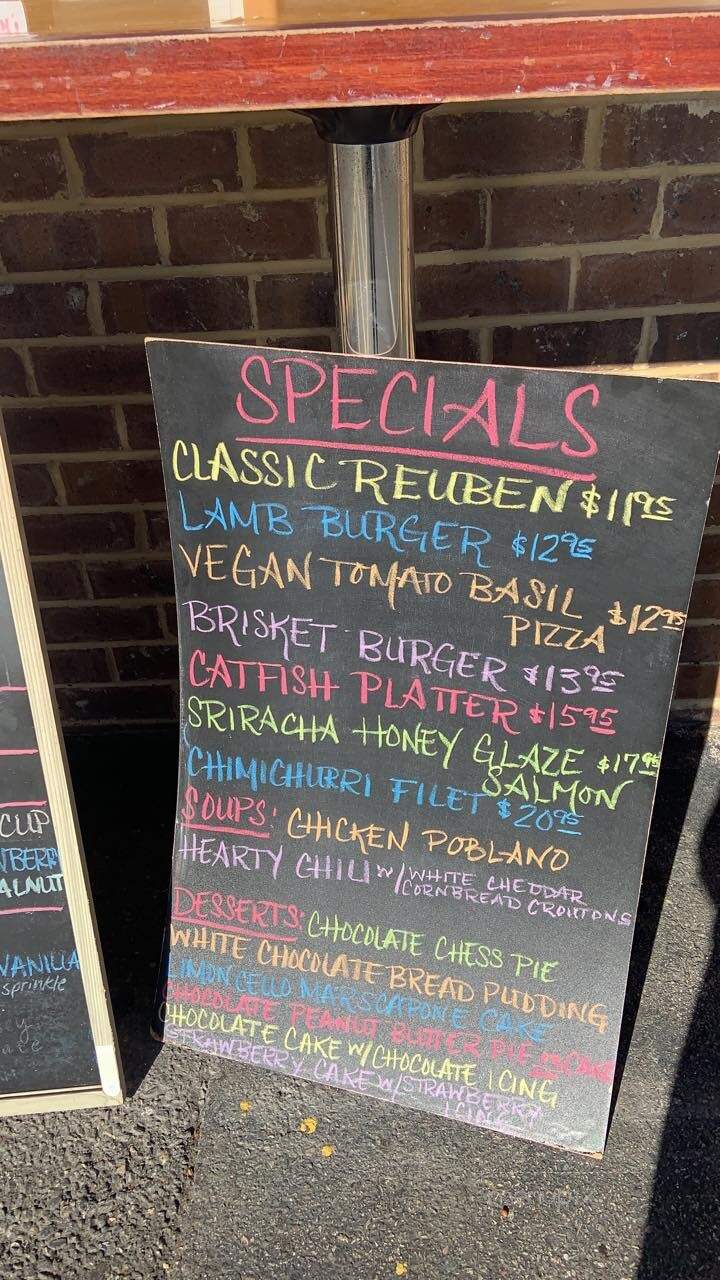 SPECIALS
CLASSIC REUBEN $11.95
LAMB BURGER $12.95
VEGAN TOMATO BASIL
PIZZA $12.95
BRISKET BURGER $13.95
CATFISH PLATTER $15.95
SRIRACHA HONEY GLAZE $17.95
SALMON
CHIMICHURRI FILET $20.95
SOUPS: CHICKEN POBLANO
HEARTY CHILI W/ WHITE CHEDDAR
CORNBREAD CROUTONS
DESSERTS: CHOCOLATE CHESS PIE
WHITE CHOCOLATE BREAD PUDDING
LIMON CELLO MARSCAPONE CAKE
CHOCOLATE PEANUT BUTTER PIE
CHOCOLATE CAKE W/CHOCOLATE ICING
STRAWBERRY CAKE W/STRAWBERRY
ICING
CUP
ALNUT
VANILLA
sprinkle